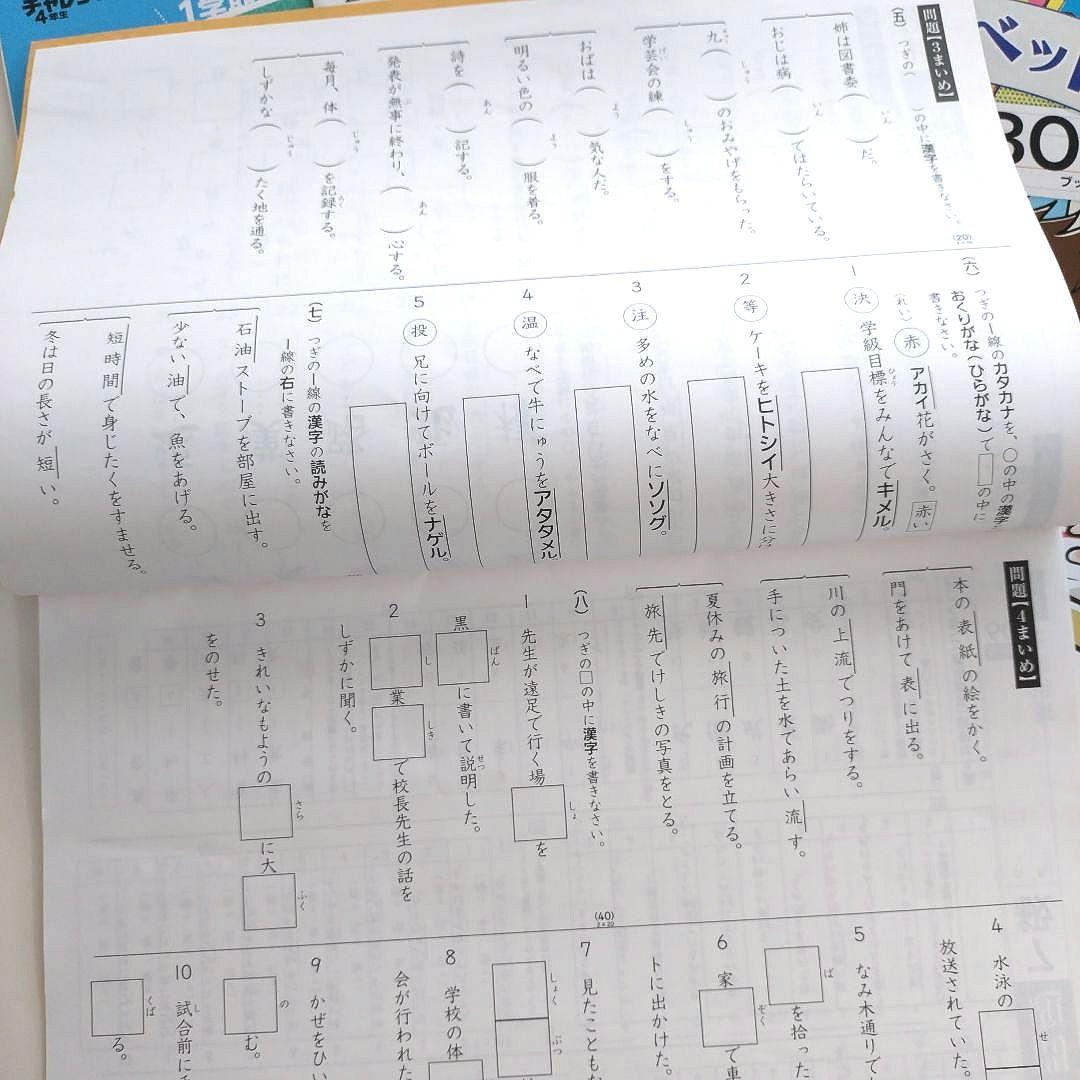 チャレンジ
4年生
ベット
30
問題【3まいめ】
(五) つぎの( )の中に漢字を書きなさい。
(20)
姉は図書委(いん)だ。
おじは病(いん)ではたらいている。
九(しゅう)のおみやげをもらった。
学芸会の練(しゅう)をする。
おばは(よう)気な人だ。
明るい色の(よう)服を着る。
詩を(あん)記する。
発表が無事に終わり、(あん)心する。
毎月、体(じゅう)を記録する。
しずかな(じゅう)たく地を通る。
(六) つぎの―線のカタカナを、○の中の漢字
おくりがな(ひらがな)で□の中に
書きなさい。
(れい) 赤 アカイ花がさく。 赤い
1 決 学級目標をみんなでキメル。
2 等 ケーキをヒトシイ大きさに分
3 注 多めの水をなべにソソグ。
4 温 なべで牛にゅうをアタタメル
5 投 兄に向けてボールをナゲル。
(七) つぎの―線の漢字の読みがなを
―線の右に書きなさい。
石油ストーブを部屋に出す。
少ない油で、魚をあげる。
短時間で身じたくをすませる。
冬は日の長さが短い。
問題【4まいめ】
本の表紙の絵をかく。
門をあけて表に出る。
川の上流でつりをする。
手についた土を水であらい流す。
夏休みの旅行の計画を立てる。
旅先でけしきの写真をとる。
(八) つぎの□の中に漢字を書きなさい。
(40)
2×20
1 先生が遠足で行く場□(しょ)を
黒□(ばん)に書いて説明した。
2 □(し)業□(しき)で校長先生の話を
しずかに聞く。
3 きれいなもようの□(さら)に大□(ふく)
をのせた。
4 水泳の□(せ)
放送されていた。
5 なみ木通りで
□(ば)を拾った
6 家□(ぞく)で車
トに出かけた。
7 見たこともな
□□(しょくぶつ)
8 学校の体
会が行われた
9 かぜをひい
□(の)む。
10 試合前に
□(くば)る。